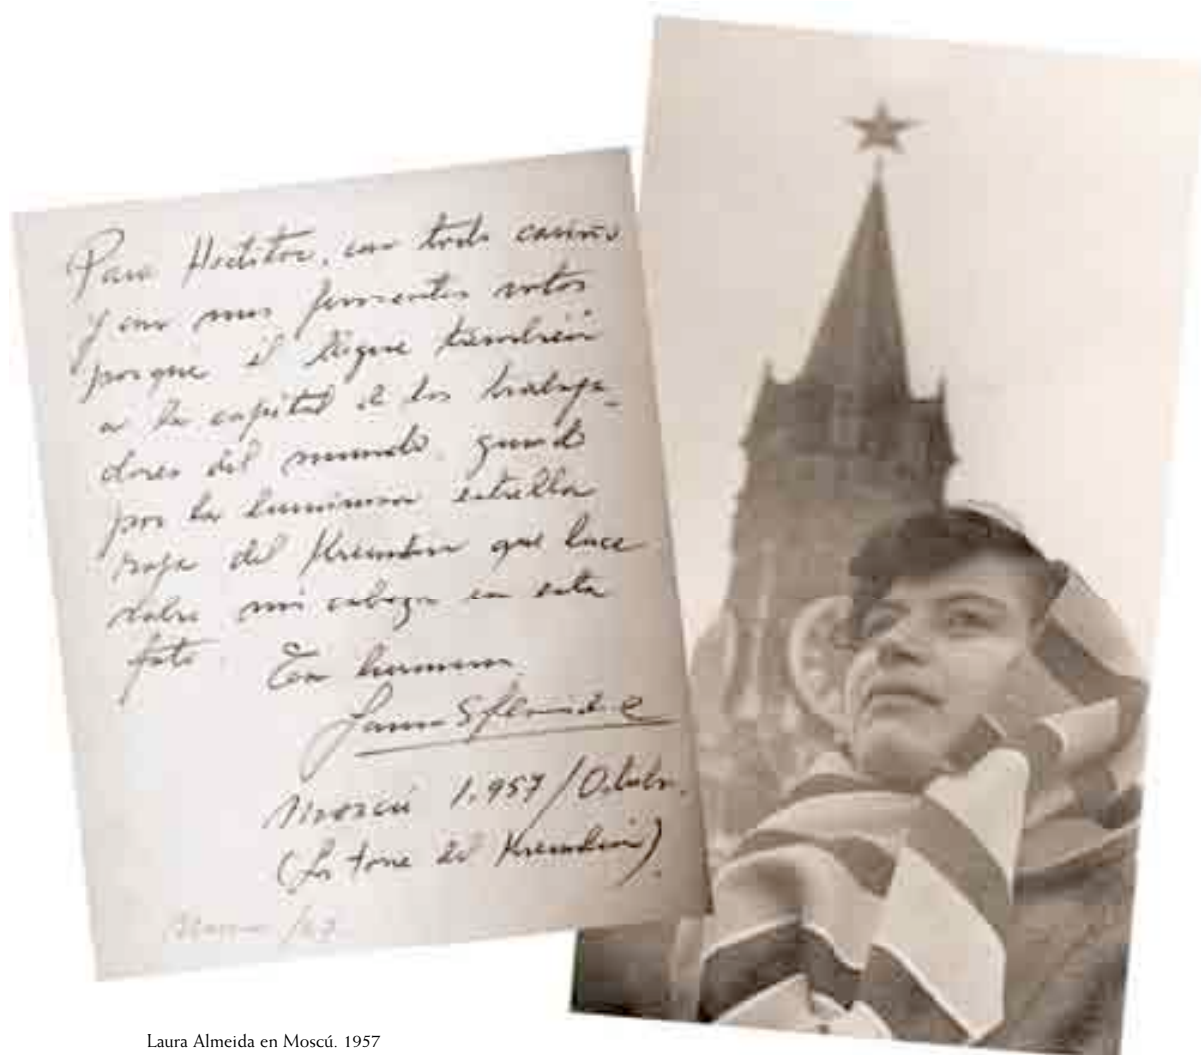 Para Hectitor, con todo cariño
y con mis fervientes votos
porque él llegue también
a la capital de los trabaja-
dores del mundo, guiado
por la luminosa estrella
roja del Kremlin que luce
sobre mi cabeza en esta
foto. Tu hermana
Laura S Almeida
Moscú 1.957 / Octubre.
(La torre del Kremlin).
Laura Almeida en Moscú. 1957